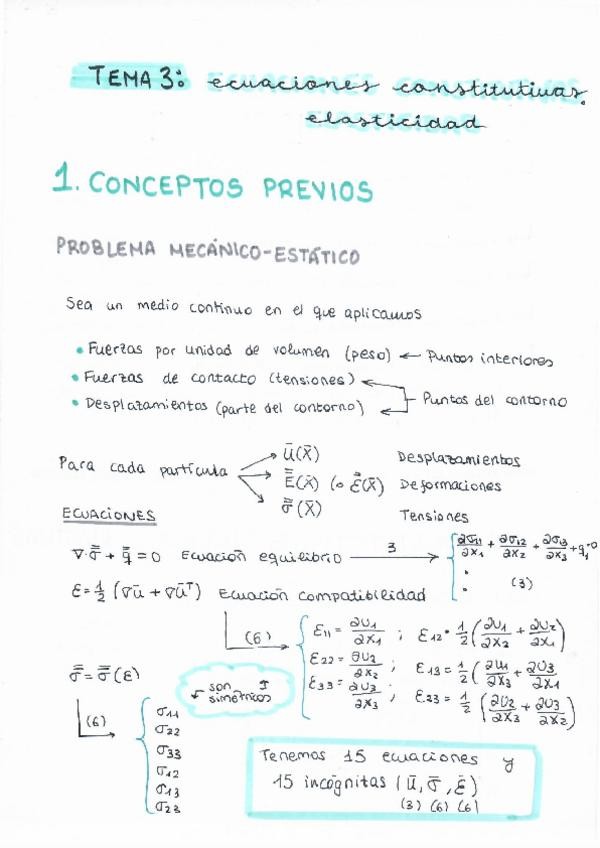 TEMA 3: ecuaciones constitutivas.
elasticidad
1. CONCEPTOS PREVIOS
PROBLEMA MECÁNICO-ESTÁTICO
Sea un medio continuo en el que aplicamos
• Fuerzas por unidad de volumen (peso) ← Puntos interiores
• Fuerzas de contacto (tensiones) ←
• Desplazamientos (parte del contorno) ← Puntos del contorno
Para cada partícula → Ū(X̄) Desplazamientos
→ Ē̄(X̄) (o Ɛ̄̄(X̄)) Deformaciones
→ σ̄̄(X̄) Tensiones
ECUACIONES
∇·σ̄̄ + q̄ = 0 Ecuación equilibrio —3→ { ∂σ11/∂x1 + ∂σ12/∂x2 + ∂σ13/∂x3 + q1=0
. (3)
.
Ɛ = 1/2 (∇ū + ∇ūᵀ) Ecuación compatibilidad
(6) { Ɛ11 = ∂U1/∂x1 ; Ɛ12 = 1/2 (∂U1/∂x2 + ∂U2/∂x1)
Ɛ22 = ∂U2/∂x2 ; Ɛ13 = 1/2 (∂U1/∂x3 + ∂U3/∂x1)
Ɛ33 = ∂U3/∂x3 ; Ɛ23 = 1/2 (∂U2/∂x3 + ∂U3/∂x2)
σ̄̄ = σ̄̄(Ɛ)
← son ↑
simétricos
(6) { σ11
σ22
σ33
σ12
σ13
σ23
Tenemos 15 ecuaciones y
15 incógnitas (Ū, σ̄, Ɛ̄)
(3) (6) (6)